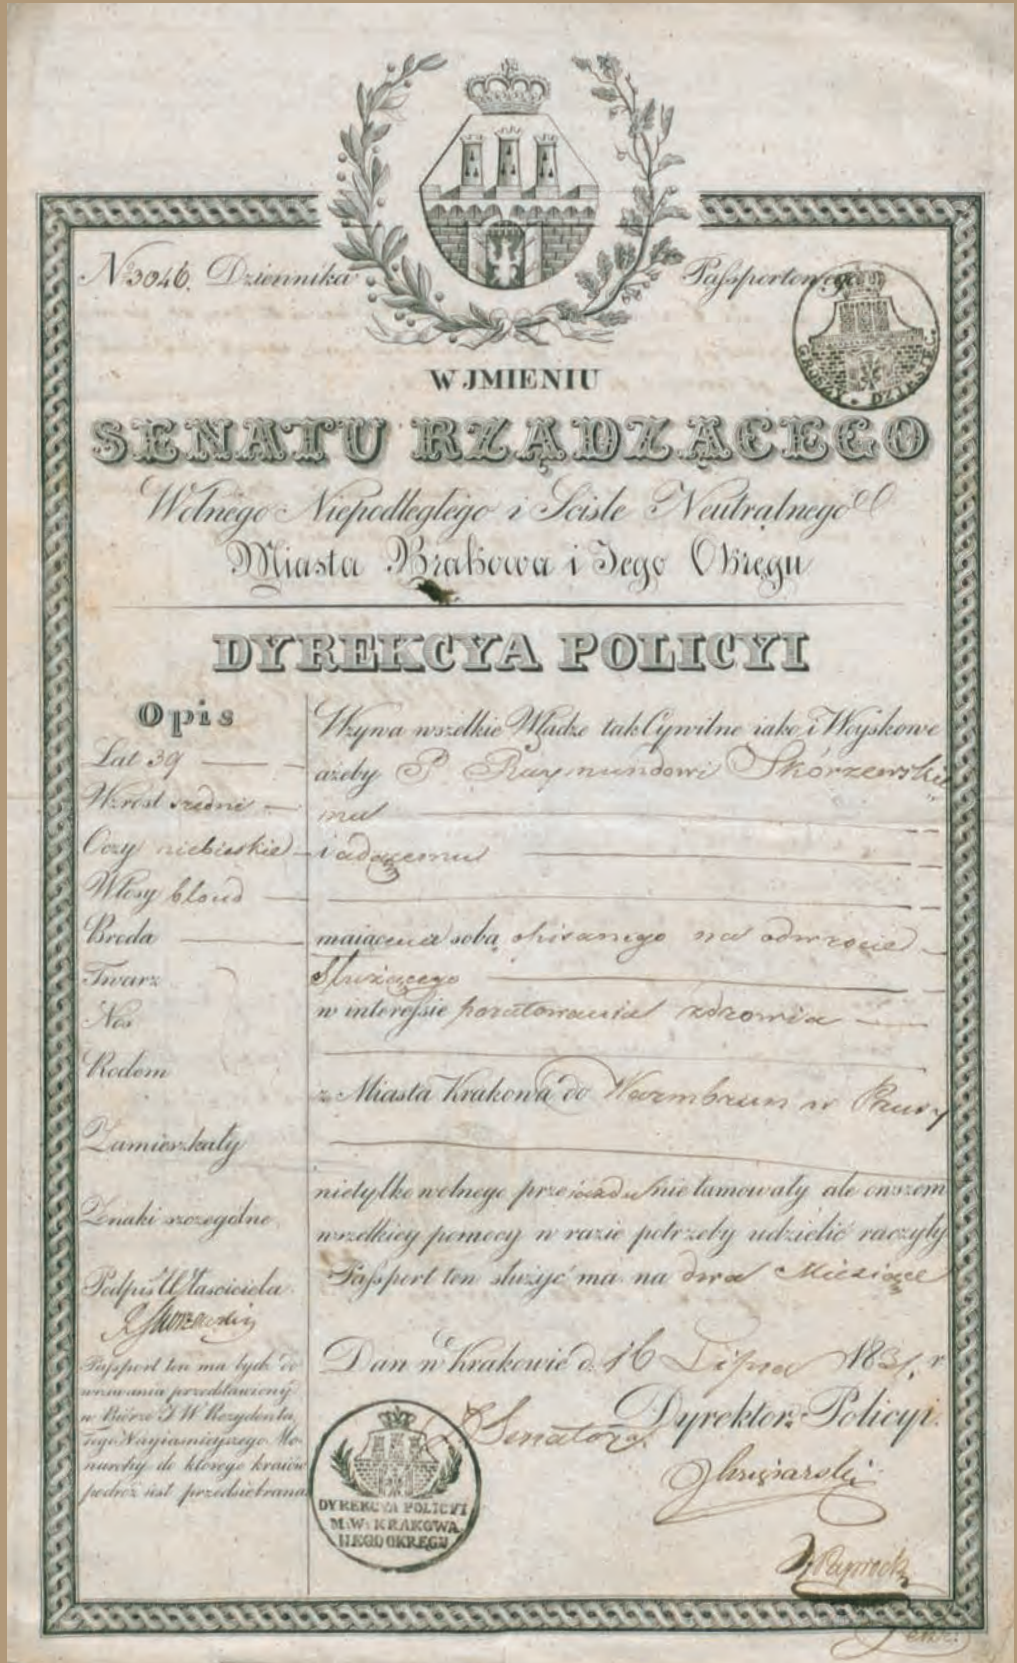 No 3046. Dziennika Passportowego
GROSZY • DZIESIĘĆ.
W JMIENIU
SENATU RZĄDZĄCEGO
Wolnego Niepodległego i Sciśle Neutralnego
Miasta Krakowa i Jego Okręgu
DYREKCYA POLICYI
Opis
Lat 39
Wzrost sredni
Oczy niebieskie
Włosy blond
Broda
Twarz
Nos
Rodem
Zamieszkały
Znaki szczególne
Podpis Własciciela
Passport ten ma bydź do
wizowania przedstawiony
w Biórze J. W. Rezydenta
tego Nayiasnieyszego Mo-
narchy do którego kraiów
podróż iest przedsiebrana
Wzywa wszelkie Władze tak Cywilne iako i Woyskowe
ażeby P. Raymundowi Skórzewskie
mu
iadącemu
maiącemu z sobą opisanego na odwrocie
Służącego
w interessie poratowania zdrowia
z Miasta Krakowa do Warmbrun w Prusy
nietylko wolnego przeiazdu nie tamowały ale owszem
wszelkiey pomocy w razie potrzeby udzielić raczyły
Passport ten służyć ma na dwa Miesiące
Dan w Krakowie d. 16 Lipca 183 r.
Dyrektor Policyi.
Z Senatora
DYREKCYA POLICYI
M: W: KRAKOWA
I JEGO OKRĘGU